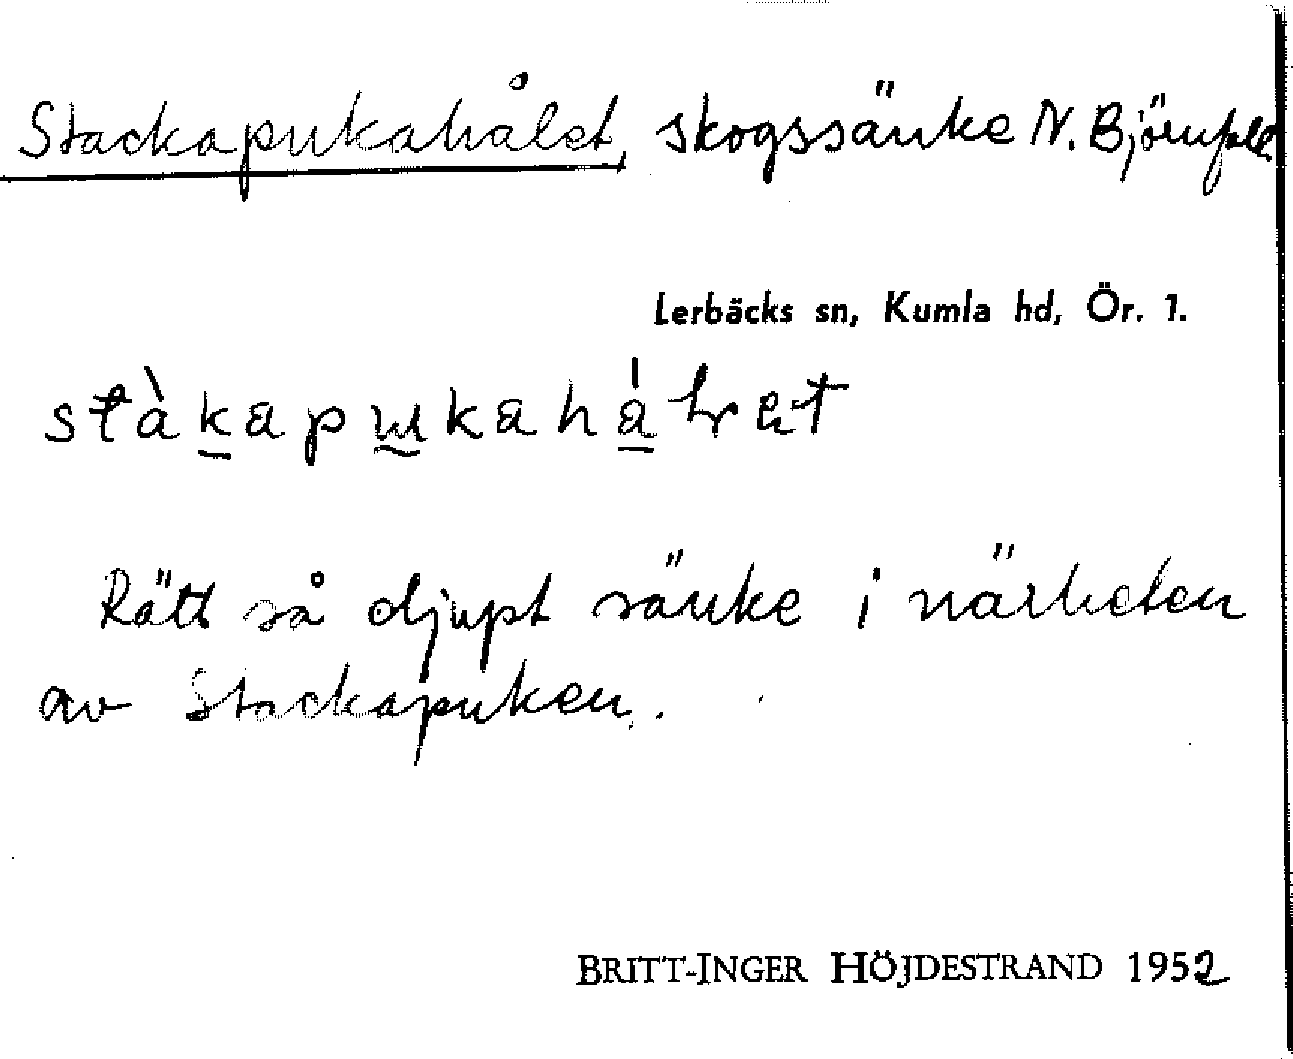 Stackapukahålet, skogssänke N. Björnfall
Lerbäcks sn, Kumla hd, Ör. 1.
Rätt så djupt sänke i närheten
av Stackapuken.
BRITT-INGER HÖJDESTRAND 1952